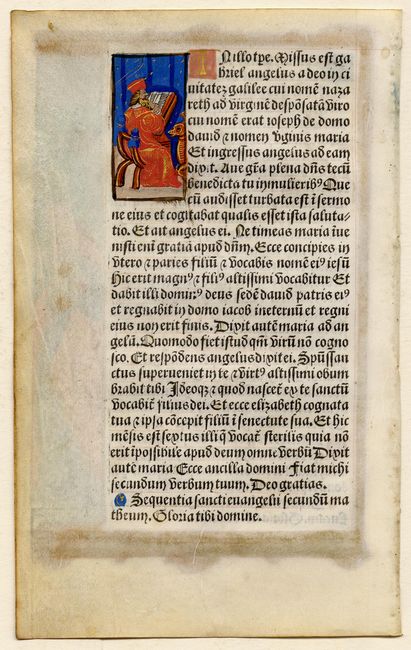 IN illo tpe. Missus est ga
briel angelus a deo in ci
uitatez galilee cui nomē naza
reth ad virginē despōsatā viro
cui nomē erat ioseph de domo
dauid ⁊ nomen v̄ginis maria
Et ingressus angelus ad eam
dixit. Aue grā plena dn̄s tecū
benedicta tu in mulierib⁹ Que
cū audisset turbata est ī sermo
ne eius et cogitabat qualis esset ista saluta-
tio. Et ait angelus ei. Ne timeas maria īue
nisti eni gratiā apud dn̄m. Ecce concipies in
vtero ⁊ paries filiū ⁊ vocabis nomē ei⁹ iesū
Hic erit magn⁹ ⁊ fili⁹ altissimi vocabitur Et
dabit illi domin⁹ deus sedē dauid patris ei⁹
et regnabit in domo iacob ineternū et regni
eius non erit finis. Dixit autē maria ad an-
gelū. Quomodo fiet istud qm̄ virū nō cogno
sco. Et respōdens angelus dixit ei. Spūssan
ctus superueniet in te ⁊ virt⁹ altissimi obum
brabit tibi Ideoqz ⁊ quod nascet̄ ex te sanctū
vocabit̄ filius dei. Et ecce elizabeth cognata
tua ⁊ ipsa cōcepit filiū ī senectute sua. Et hic
mēsis est sextus illi q̄ vocat̄ sterilis quia nō
erit īpossibile apud deum omne verbū Dixit
autē maria Ecce ancilla domini Fiat michi
secundum verbum tuum. Deo gratias.
Sequentia sancti euangelii secundū ma
theum. Gloria tibi domine.